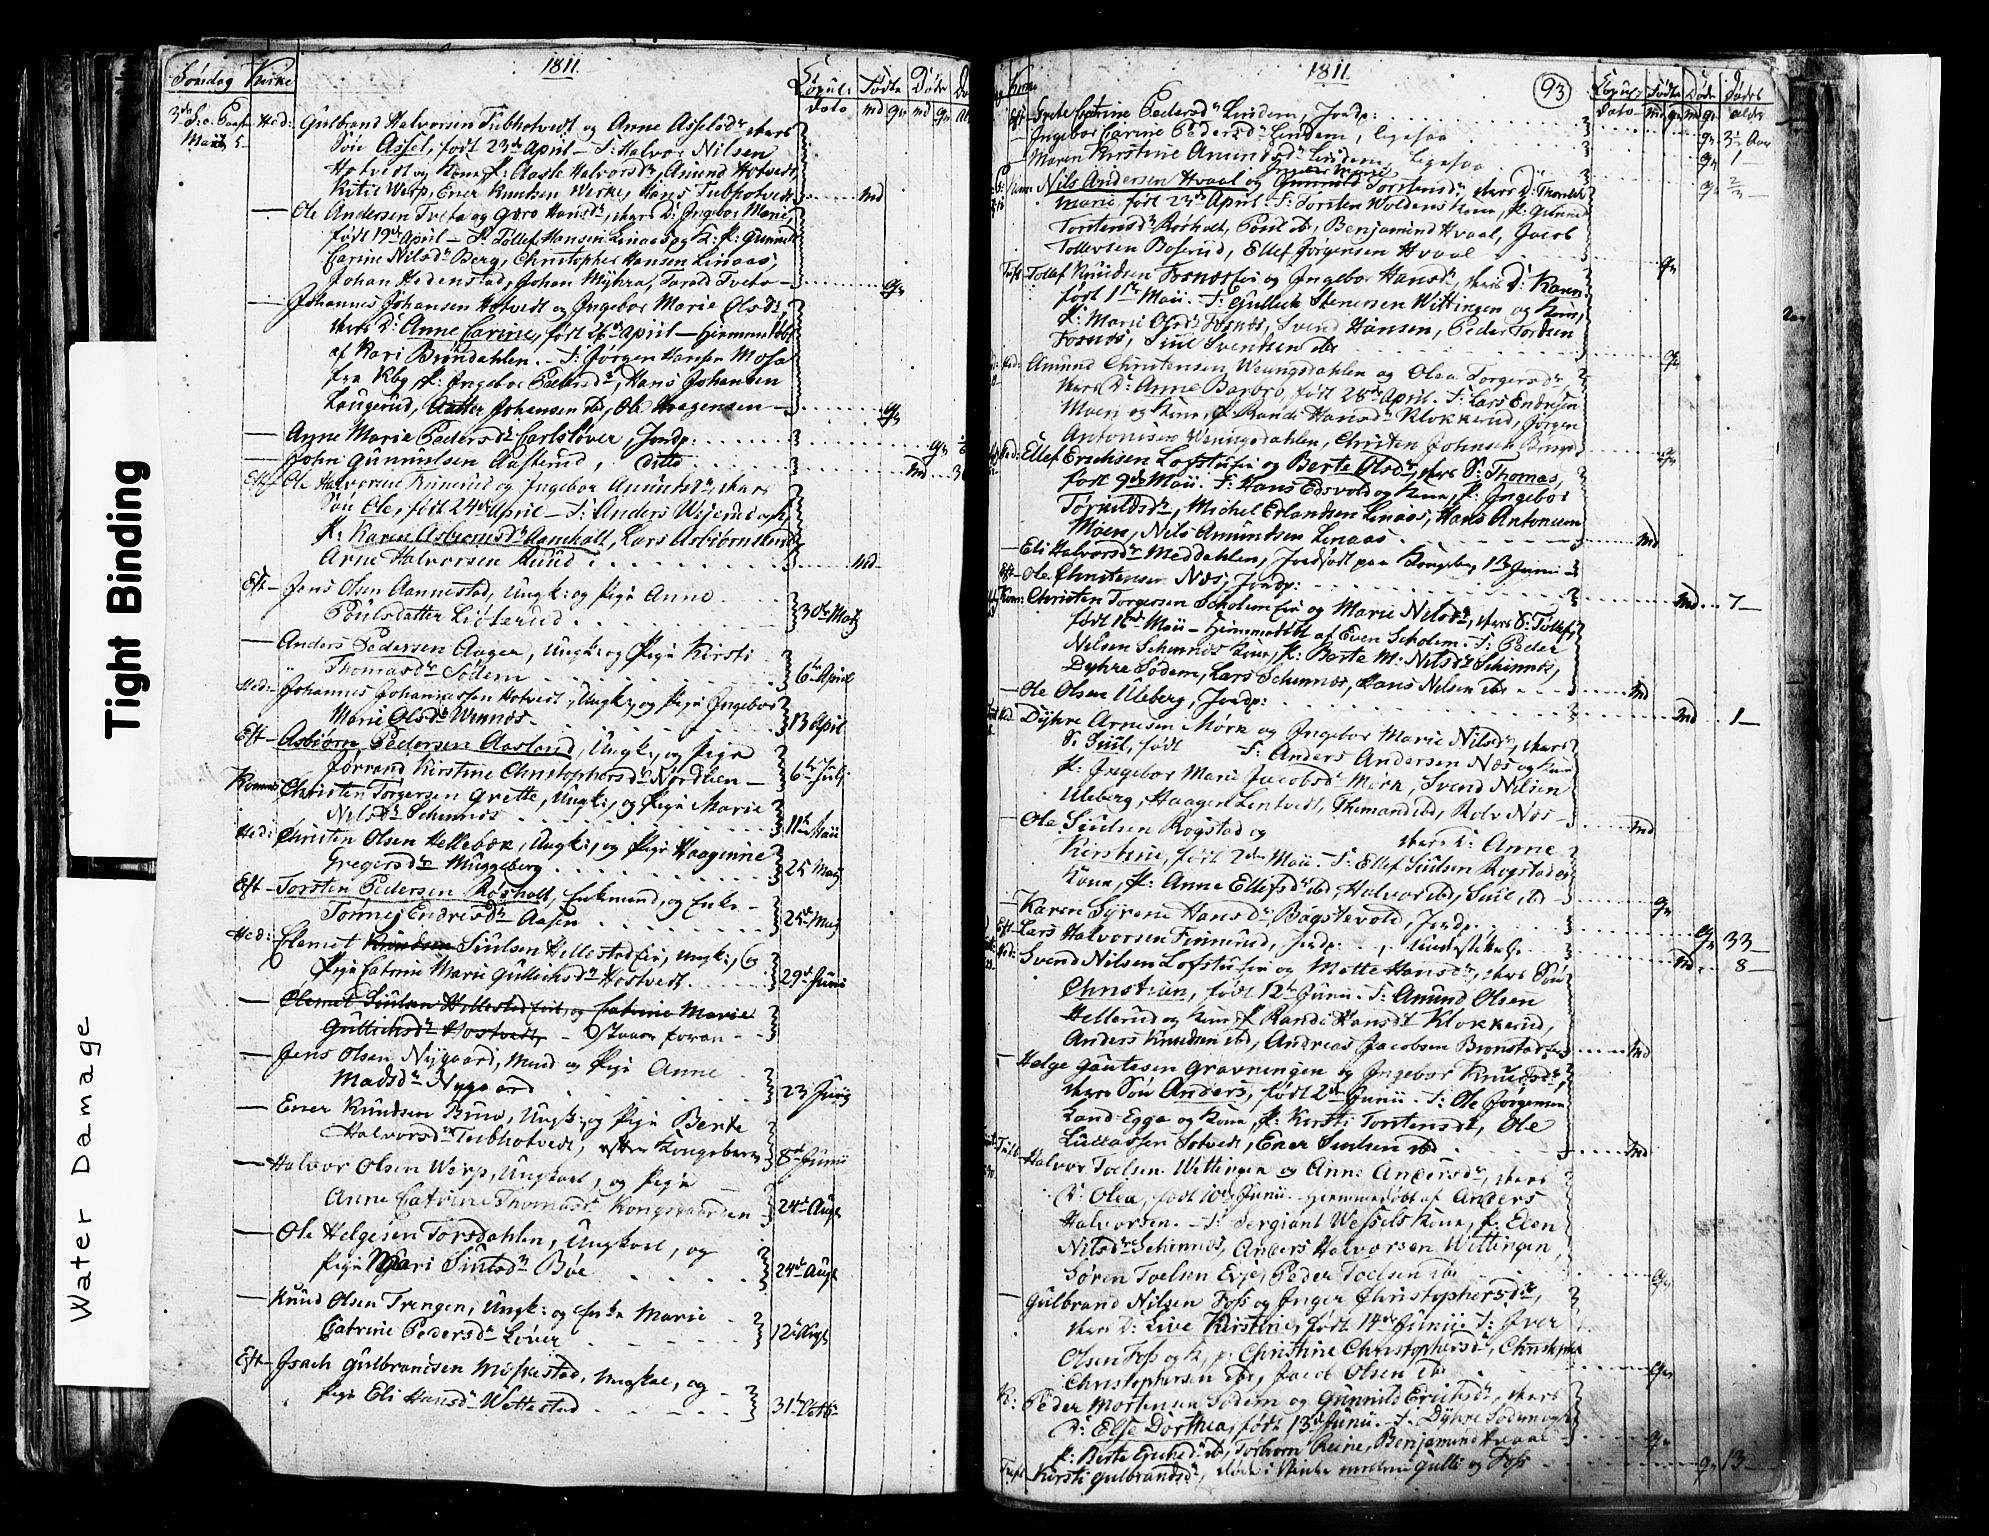 Tight Binding
Water Damage
1811.
Søndag Kirke Copul: Fødte Døde
dato md qv md qv
3de S. a. Paaske Hed: Gulbrand Halvorsen Tubhotvedt og Anne Asselsdr deres
Søn Assel, født 23de April – F: Halvor Nilsen
Hotvedt og Kone, P: Aaste Halvorsdr, Amund Hotvedt,
Kitil Werp, Ener Knudsen Werke, Hans Tubhotvedt md
— Ole Andersen Tveta og Gøro Hansdr, deres D: Ingebor Marie,
født 19de April – F: Tollef Hansen Linaas og K: P: Gunnild
Carine Nilsdr Berg, Christopher Hansen Linaas,
Johan Hedenstad, Johan Myhra, Tarald Tveta qv
— Johannes Johansen Hotvedt og Ingebor Marie Olsdr,
deres D: Anne Carine, født 26de April – hjemmedøbt
af Kari Brøndahlen. – F: Jørgen Hansen Mosa
fra Kbg, P: Ingebor Pedersdr, Hans Johansen
Laugerud, Johansen ibd, Ole Haagensen qv
— Anne Marie Pedersdr Carlsløver, Jordp: qv
— John Gunnulsen Aasterud, ditto md
Eft Ole Halvorsen Rimerud og Ingebor Amundsdr, deres
Søn Ole, født 24de April – F: Anders Wejerud og K,
P: Karen Asbiørnsdr Aamhalt, Lars Asbiørnsen ibd
Arne Halvorsen Rund md
Eft – Jens Olsen Aannestad, Ungk: og Pige Anne
Poulsdatter Liøterud 30de Martz
— Anders Pedersen Aager, Ungk: og Pige Kirsti
Thomasdr Sødem 6te April
Hed: – Johannes Johannessen Hotvedt, Ungk; og Pige Ingebor
Marie Olsdr Wennæs 13 April
Eft – Asbiørn Pedersen Aasland, Ungk:, og Pige
Jørrand Kirstine Christophersdr Nordlien 6te July
Komnes Christen Torgersen Grette, Ungk:, og Pige Marie
Nilsdr Schimnes 11te Maii
Hed: Christen Olsen Hellebæk, Ungk:, og Pige Haaginne
Gregersdr Muggeberg 25 Maij
Eft – Torsten Pedersen Røsholt, Enkemand, og Enke
Tørnej Endresdr Aasen 25de Maij
Hed: Clemet Knudsen Siulsen Hellestadeie, ungk:, og
Pige Catrine Marie Gullichsdr Hostvedt 29de Junii
— Clemet Siulsen Hellestadeie og Catrine Marie
Gullichsdr Hostvedt – Staaer foran –
— Jens Olsen Nygaard, Mand og Pige Anne
Madsdr Nygaard 23 Junij
— Ener Knudsen Buo, Ungk: og Pige Berte
Halvorsdr Tubhotvedt, Kongsberg 8de Junii
— Halvor Olsen Werp, Ungkarl, og Pige
Anne Catrine Thomasdr Kongsgaarden 24de Augt
— Ole Helgesen Torsdahlen, Ungkarl, og
Pige Mari Siulsdr Bøe 24de Augt
— Knud Olsen Trengen, Ungk: og Enke Marie
Catrine Pedersdr Løver 12te
Eft – Isach Gulbrandsen Møstestad, Ungkal, og
Pige Eli Hansdr Wettestad 31te Octb:
1811. 93
Copul: Fødte Døde Dødes
dato md qv md qv alder
Eft – Grete Catrine Pedersdr Lindem, Jordp: qv 3½ Aar
— Ingebor Carine Pedersdr Lindem, ligesaa qv 1 –
— Maren Kirstine Amundsdr Lindem, ligesaa qv 2/3 –
Ingebor Marie
Nils Andersen Hvaal og Gunnild Torstensdr, deres D: Thorild
Marie, født 23de April. F: Torsten Woldens Kone, P: Gunnild
Torstensdr Røsholt, Poul ibd, Benjamin Hvaal, Jacob
Tollevsen Boserud, Ellef Jørgensen Hvaal qv
Tuft – Tollef Knudsen Fosnæseie og Ingebor Hansdr, deres D: Karen
født 1te Maii. F: Gullich Stenersen Wittingen og Kone,
P: Marie Olsdr Fosnæs, Svend Hansen, Peder Tordsen
Fosnæs, Siul Svendsen ibd qv
Hed: Amund Christensen Weungsdahlen og Olea Torgersdr,
deres D: Anne Barbro, født 28de April. F: Lars Endresen
Moen og Kone, P: Rande Hansdr Klokkerud, Jørgen
Antonisen Weungsdahlen, Christen Johnsen qv
Hed: Ellef Erichsen Lofstueie og Berte Olsdr, deres S: Thomas,
født 9de Maii. F: Hans Edsvold og Kone, P: Ingebor
Tørnildsdr, Michel Erlandsen Linaas, Hans Antonium
Moen, Nils Amundsen Linaas md
— Eli Halvorsdr Meddahlen, Jordfæst paa Kongsberg 1te Junii –
Eft – Ole Christensen Næs, Jordp: md 7 –
Kom: Christen Torgersen Scholemeie og Marie Nilsdr, deres S: Tollef,
født 16de Maii – hjemmedøbt af Even Scholem. F: Peder
Nielsen Schimnes Kone, P: Berte M: Nilsdr Schimnes,
Dyhre Sødem, Lars Schimnæs, Hans Nilsen ibd md
— Ole Olsen Uleberg, Jordp: md 1 –
Hed: Dyhre Arnesen Mørk og Ingebor Marie Nilsdr, deres
S: Siul, født F: Anders Andersen Næs og Kone
P: Ingebor Marie Jacobsdr Mørk, Svend Nilsen
Uleberg, Haagen Lintvedt, Thomand ibd, Rolv Næs md
— Ole Siulsen Rogstad og deres D: Anne
Kirstine, født 2den Maii – F: Ellef Siulsen Rogstad og
Kone, P: Anne Ellefsdr ibd, Halvor ibd, Siul ibd qv
— Karen Syrene Hansdr Bagstevold, Jordp. qv 33 –
Eft – Lars Halvorsen Finnerud, Jordp: md 8 –
Hed: Svend Nilsen Lofstueie og Mette Hansdr, deres Søn
Christian, født 12te Junii. F: Amund Olsen
Hellerud og Kone, P: Rande Hansdr Klokkerud,
Anders Knudsen ibd, Andreas Jacobsen Bronstad md
— Helge Gautesen Gravningen og Ingebor Knudsdr,
deres Søn Anders, født 2de Junii – F: Ole Jørgensen
Land-Egge og Kone, P: Kirsti Torstensdr, Ole
Lucassen Sotvedt, Ener Siulsen ibd md
Halvor Toelsen Wittingen og Anne Andersdr, deres
D: Olea, født 10de Junii. hjemmedøbt af Anders
Halvorsen. – F: Sergiant Wessels Kone, P: Elen
Nilsdr Schimnes, Anders Halvorsen Wittingen,
Søren Toelsen Evje, Peder Toelsen ibd qv
— Gulbrand Nilsen Foss og Inger Christophersdr,
deres D: Live Kirstine, født 14de Junii. F: Iver
Olsen Foss og K, P: Christine Christophersdr, Christopher
Christophersen ibd, Jacob Olsen ibd qv
K: Peder Mortensen Sødem og Gunnild Erichsdr, deres
D: Else Dorthea, født 13de Junii. – F: Dyhre Sødem og K:
P: Berte Erichsdr ibd, Torbiørn Reine, Benjamin Hvaal qv
Tuft Kirsti Gulbrandsdr, døde i og Foss qv 13